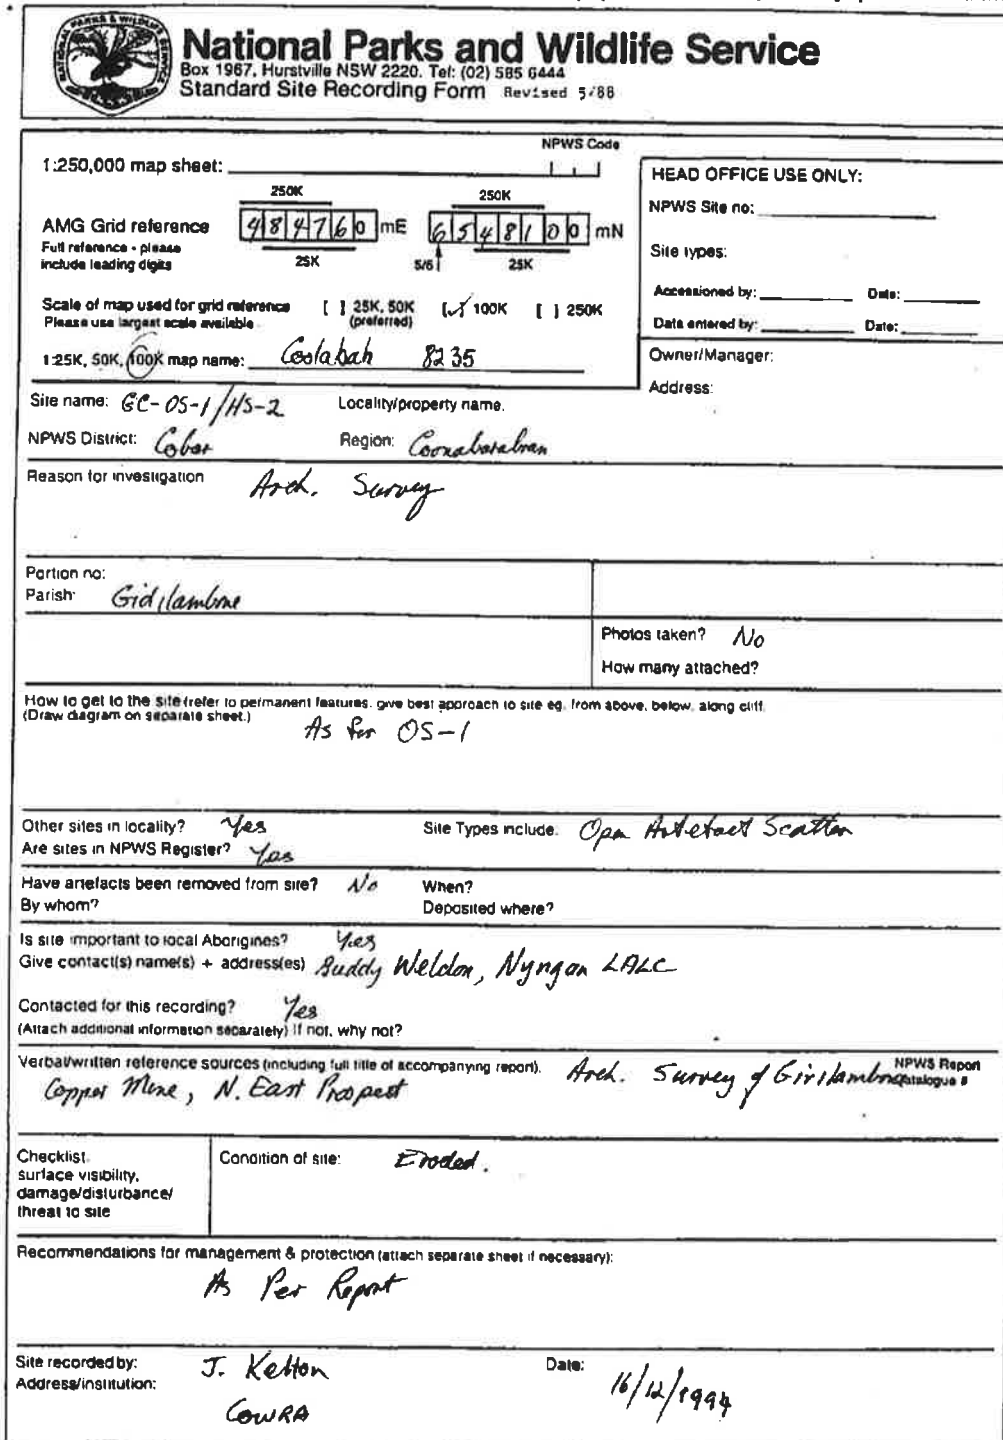 National Parks and Wildlife Service
Box 1967, Hurstville NSW 2220. Tel: (02) 585 6444
Standard Site Recording Form Revised 5/88
NPWS Code
1:250,000 map sheet:
HEAD OFFICE USE ONLY:
250K 250K
NPWS Site no:
AMG Grid reference 484760 mE 6548100 mN
Full reference - please
include leading digits
25K 5/6 25K
Site types:
Accessioned by: Date:
Scale of map used for grid reference [ ] 25K, 50K [✓] 100K [ ] 250K
Please use largest scale available (preferred)
Data entered by: Date:
1:25K, 50K, 100K map name: Coolabah 8235
Owner/Manager:
Address:
Site name: GC-OS-1/HS-2 Locality/property name.
NPWS District: Cobar Region: Coonabarabran
Reason for investigation Arch. Survey
Portion no:
Parish: Girilambone
Photos taken? No
How many attached?
How to get to the site (refer to permanent features, give best approach to site eg. from above, below, along cliff.
(Draw diagram on separate sheet.)
As for OS-1
Other sites in locality? Yes Site Types include. Open Artefact Scatter
Are sites in NPWS Register? Yes
Have artefacts been removed from site? No When?
By whom? Deposited where?
Is site important to local Aborigines? Yes
Give contact(s) name(s) + address(es) Buddy Weldon, Nyngan LALC
Contacted for this recording? Yes
(Attach additional information separately) If not, why not?
Verbal/written reference sources (including full title of accompanying report). Arch. Survey of Girilambone NPWS Report
Catalogue #
Copper Mine, N. East Prospect
Checklist.
surface visibility,
damage/disturbance/
threat to site
Condition of site: Eroded.
Recommendations for management & protection (attach separate sheet if necessary):
As Per Report
Site recorded by: J. Kelton Date: 16/12/1994
Address/institution: COWRA